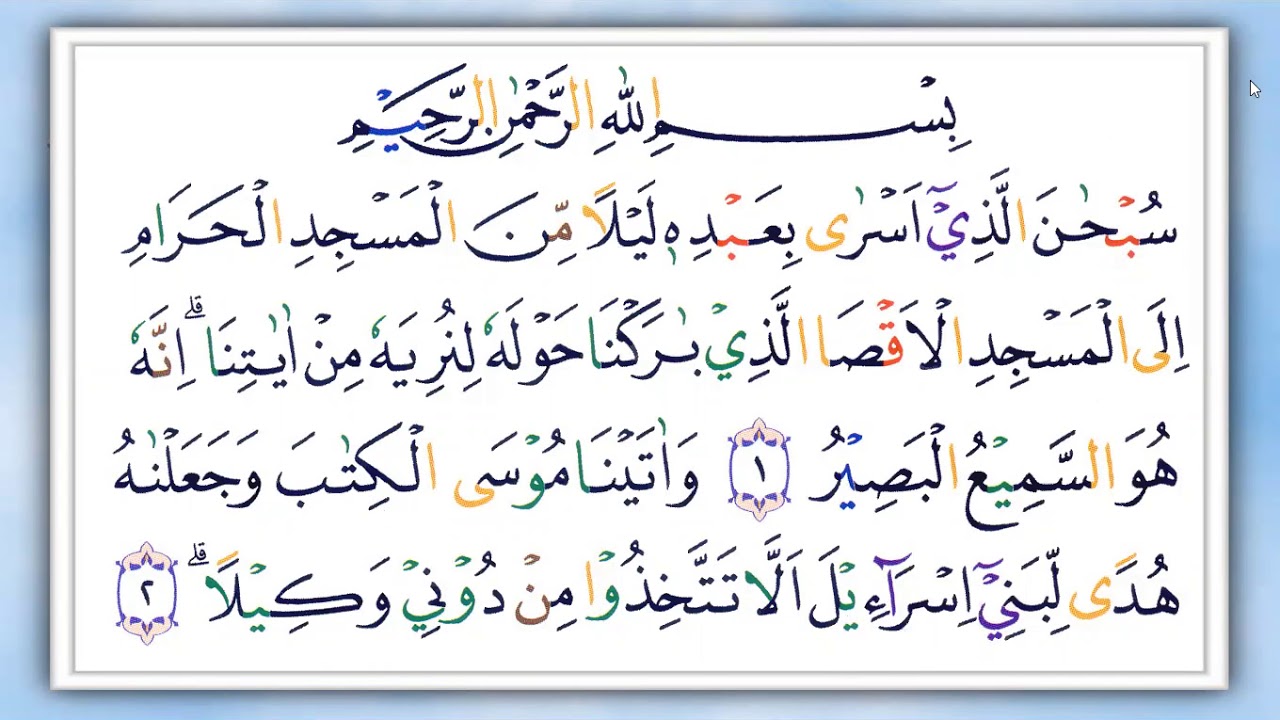 بِسْمِ اللّٰهِ الرَّحْمٰنِ الرَّحِيْمِ
سُبْحٰنَ الَّذِيْٓ اَسْرٰى بِعَبْدِهٖ لَيْلًا مِّنَ الْمَسْجِدِ الْحَرَامِ
اِلَى الْمَسْجِدِ الْاَقْصَا الَّذِيْ بٰرَكْنَا حَوْلَهٗ لِنُرِيَهٗ مِنْ اٰيٰتِنَاۗ اِنَّهٗ
هُوَ السَّمِيْعُ الْبَصِيْرُ ١ وَاٰتَيْنَا مُوْسَى الْكِتٰبَ وَجَعَلْنٰهُ
هُدًى لِّبَنِيْٓ اِسْرَاۤءِيْلَ اَلَّا تَتَّخِذُوْا مِنْ دُوْنِيْ وَكِيْلًاۗ ٢